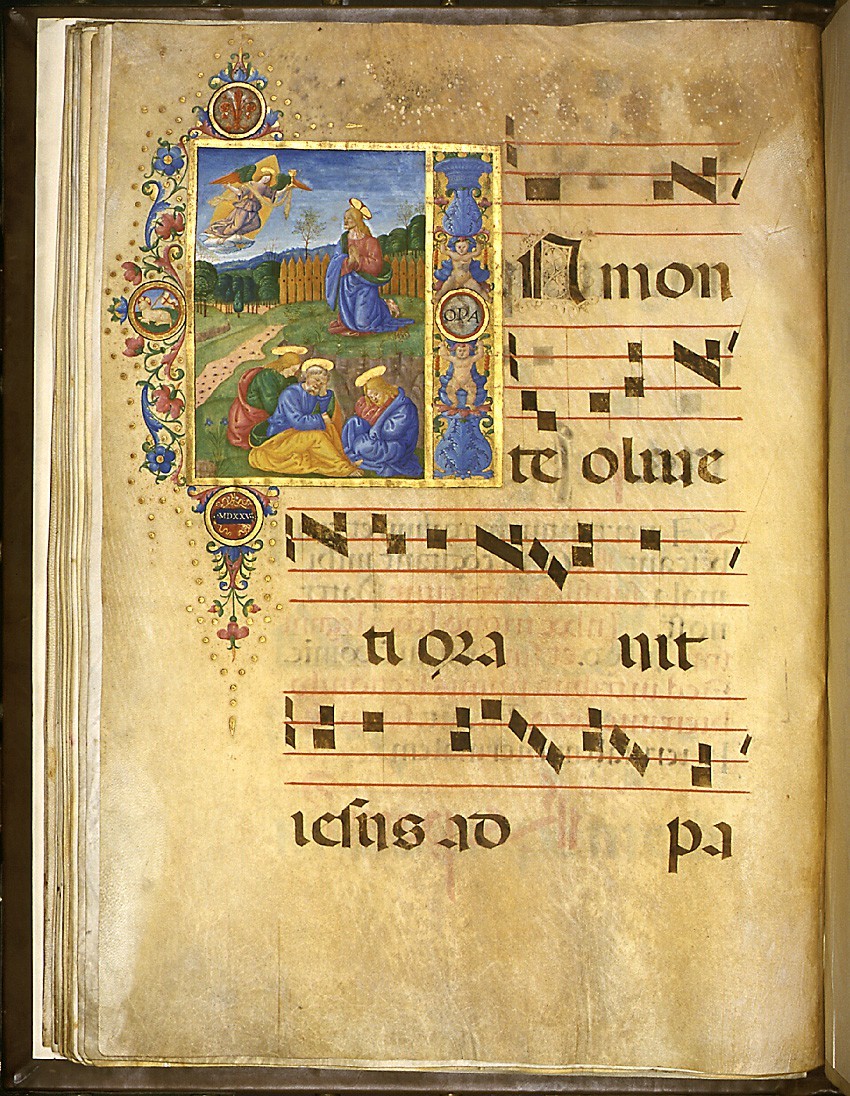 ORA
In mon
te oliue
ti ora uit
iesus ad pa
·MDXXV·